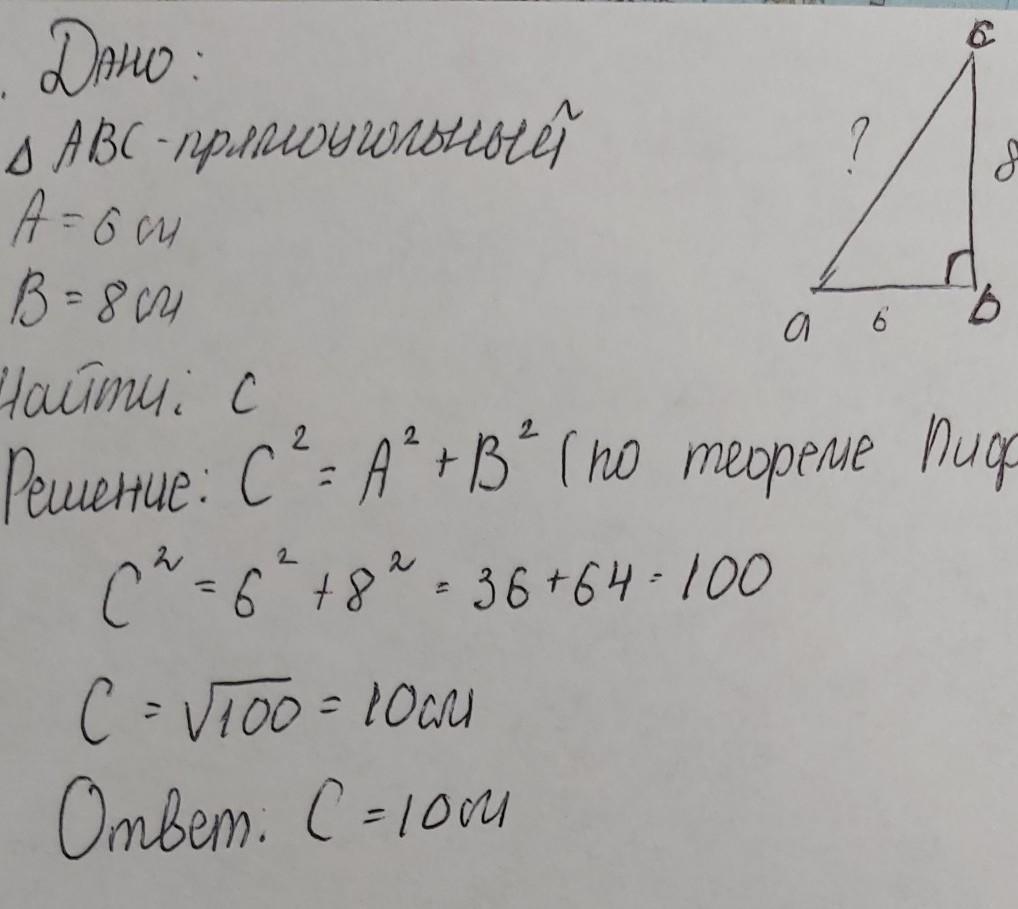 Дано:
Δ ABC - прямоугольный
A = 6 см
B = 8 см
Найти: c
Решение: C² = A² + B² (по теореме Пиф
C² = 6² + 8² = 36 + 64 = 100
C = √100 = 10 см
Ответ: C = 10 см
c
?
8
a
6
b